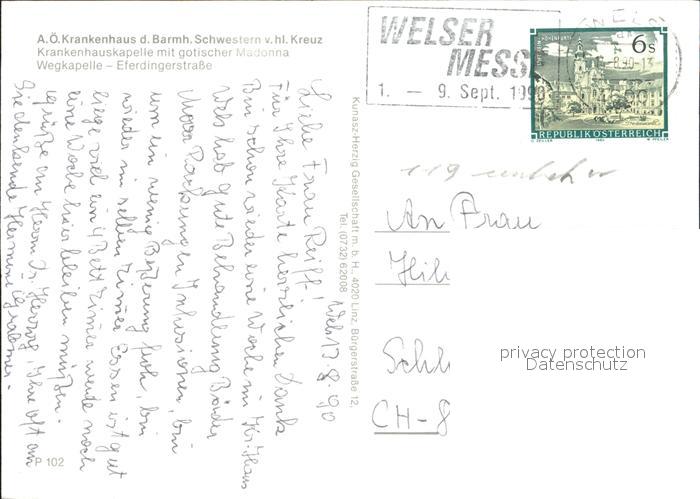 A.Ö. Krankenhaus d. Barmh. Schwestern v. hl. Kreuz
Krankenhauskapelle mit gotischer Madonna
Wegkapelle – Eferdingerstraße
WELSER
MESS
1. – 9. Sept. 1990
6 s
REPUBLIK ÖSTERREICH
Kunasz-Herzig Gesellschaft m. b. H., 4020 Linz, Bürgerstraße 12,
Tel. (0732) 62008
Wels 13.8.90
Liebe Frau Reiff!
Für Ihre Karte herzlichen Dank
Bin schon wieder eine Woche im Kr. Haus
Wels hab gute Behandlung Bäder
Moor Packungen Infusionen, bin
um ein wenig Besserung froh, bin
wieder im selben Zimmer Essen ist gut
liege viel ein 4 Bett Zimmer werde noch
eine Woche hier bleiben müßen.
Grüße an Herrn Dr. Herzog, Ihre oft an
Sie denkende Hermine
An Frau
CH-8
privacy protection
Datenschutz
P 102